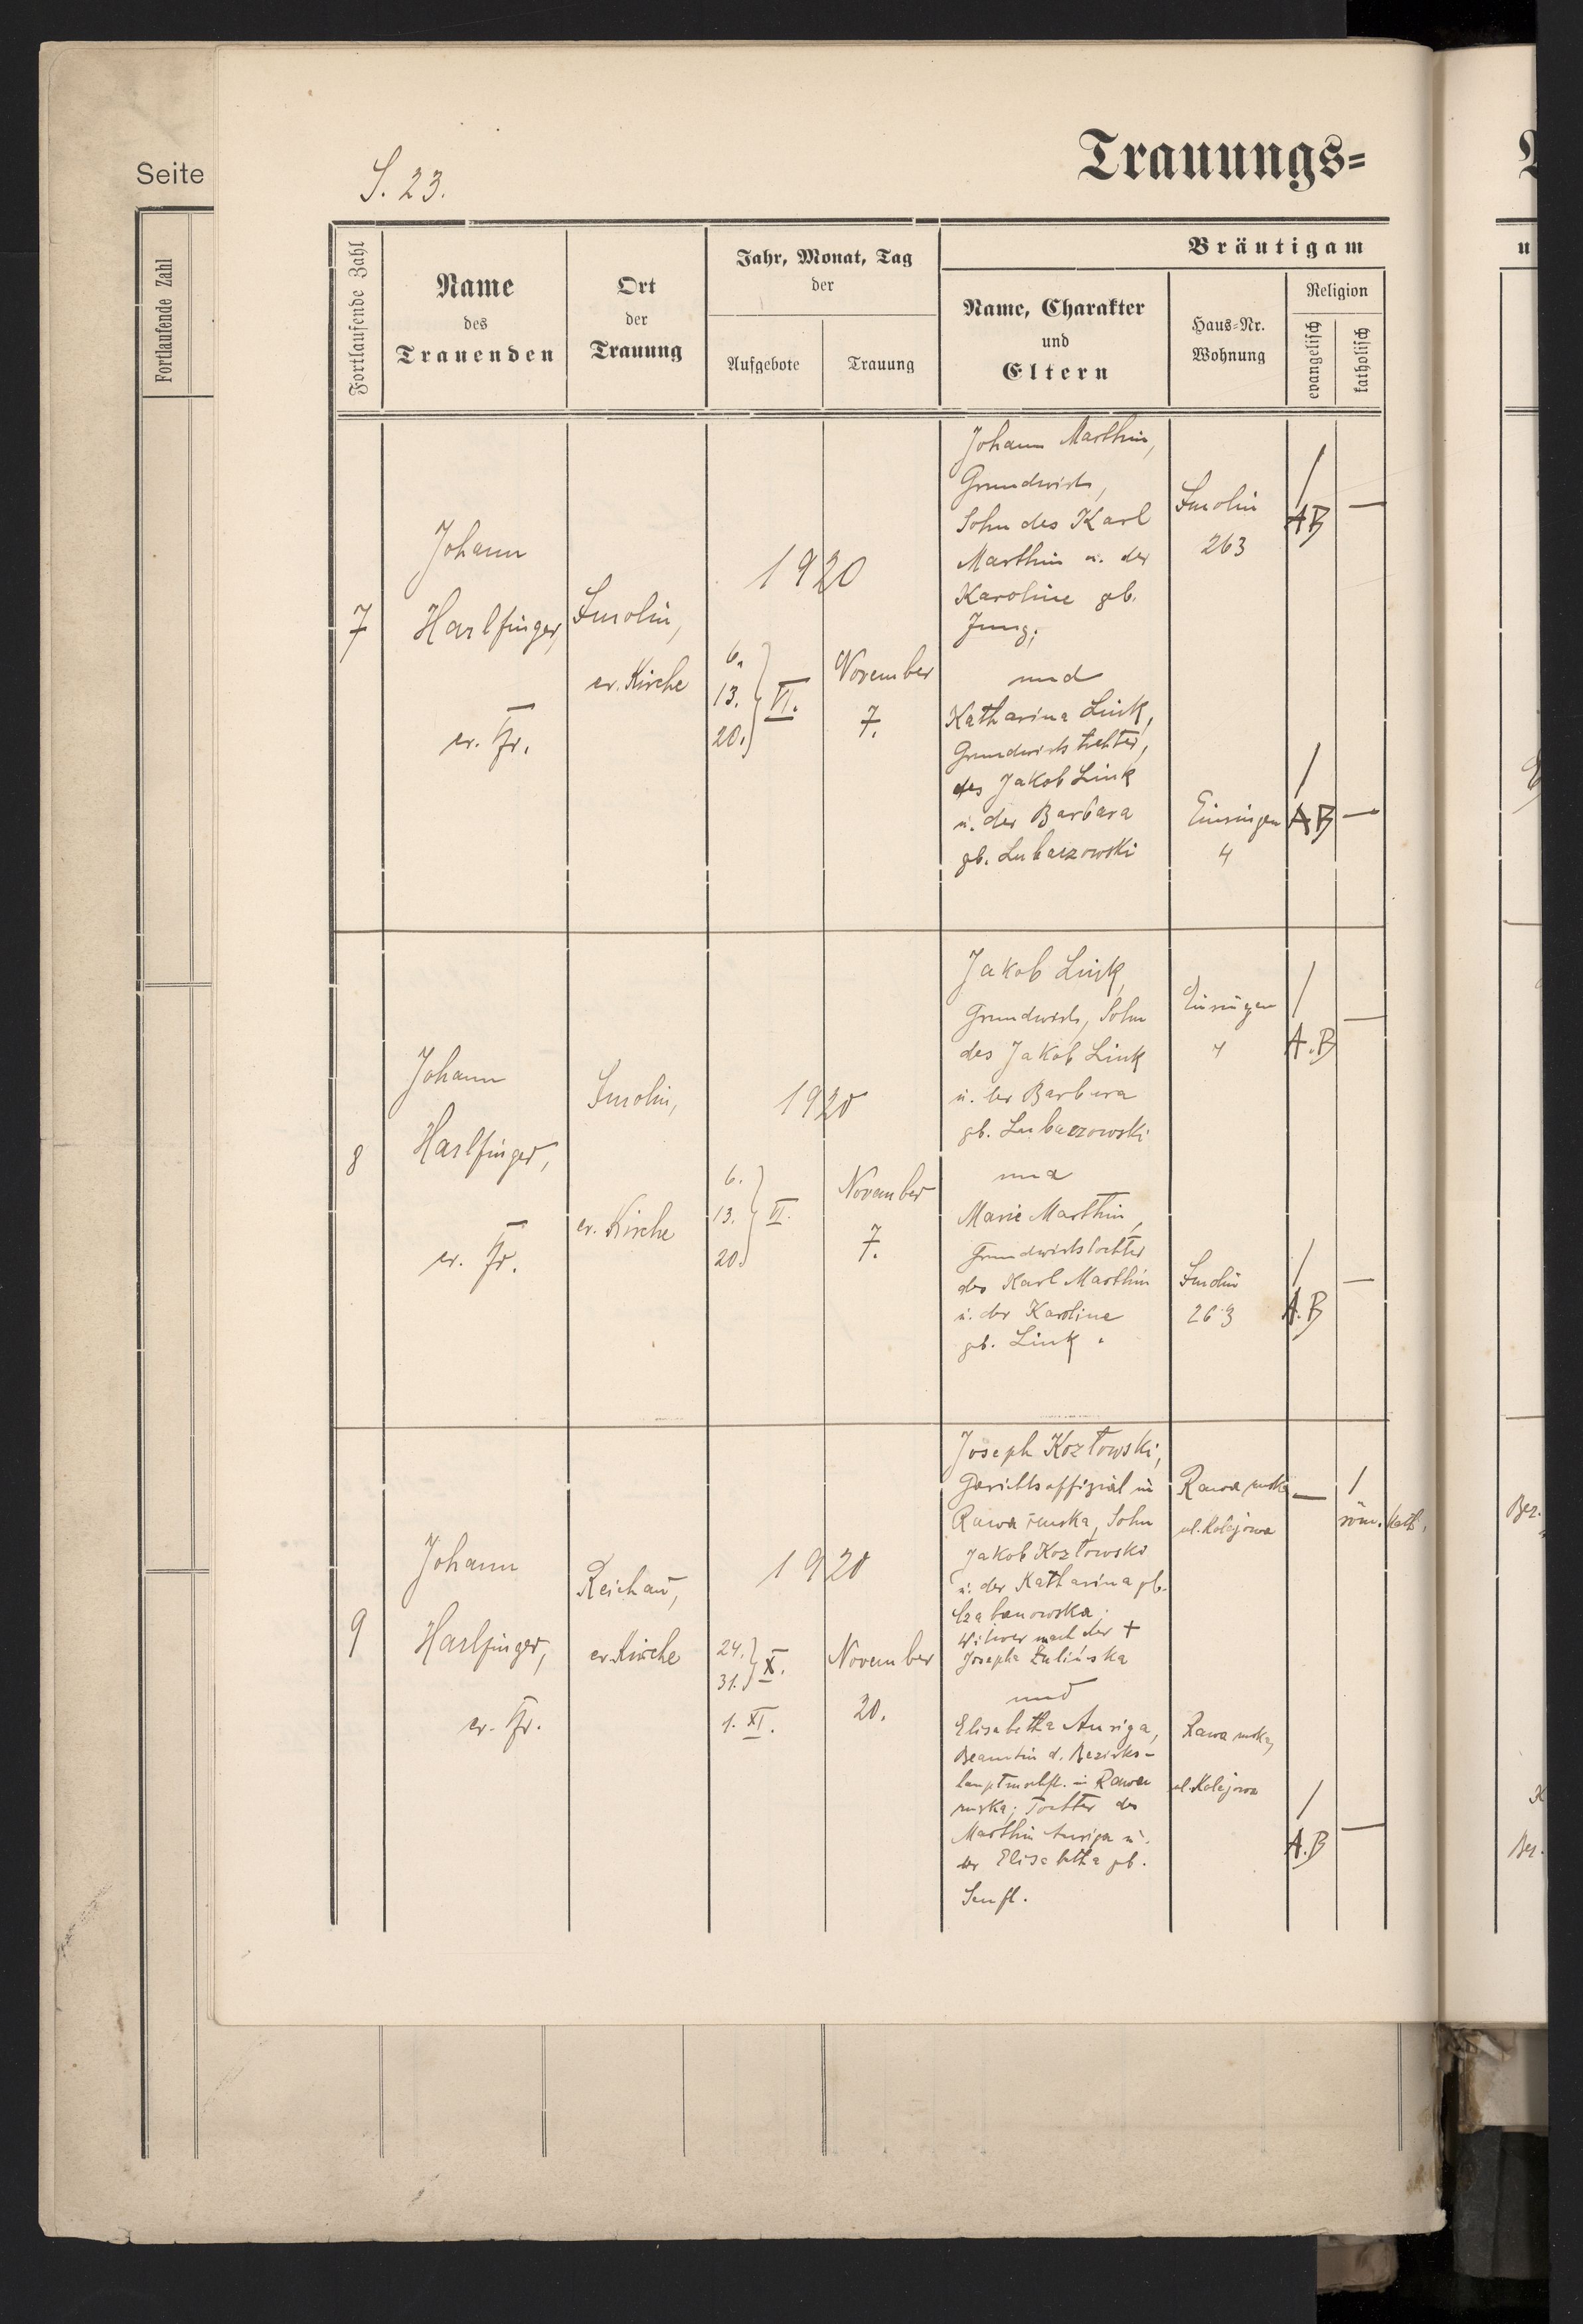 Seite
S. 23.
Trauungs=
Fortlaufende Zahl
Fortlaufende Zahl
Name
des
Trauenden
Ort
der
Trauung
Jahr, Monat, Tag
der
Aufgebote
Trauung
Bräutigam
Name, Charakter
und
Eltern
Haus=Nr.
Wohnung
Religion
evangelisch
katholisch
7
Johann
Harlfinger,
ev. Pfr.
Smolin,
ev. Kirche
1920
6.
13. } VI.
20.
November
7.
Johann Marthin,
Grundwirth,
Sohn des Karl
Marthin u. der
Karoline geb.
Jung;
und
Katharina Link,
Grundwirthstochter,
des Jakob Link
u. der Barbara
gb. Lubaczowski
Smolin
263
/
AB
—
Einsingen
4
/
AB
—
8
Johann
Harlfinger,
ev. Pfr.
Smolin,
ev. Kirche
1920
6.
13. } VI.
20.
November
7.
Jakob Link,
Grundwirth, Sohn
des Jakob Link
u. der Barbara
gb. Lubaczowski
und
Marie Marthin,
Grundwirthstochter
des Karl Marthin
u. der Karoline
gb. Link.
Einsingen
4
/
A.B
—
Smolin
263
/
A.B
—
9
Johann
Harlfinger,
ev. Pfr.
Reichau,
ev. Kirche
1920
24.
31. } X.
1. XI.
November
20.
Joseph Kozłowski,
Gerichtsoffizial in
Rawa ruska, Sohn
Jakob Kozłowski
u. der Katharina gb.
Witwer nach der +
Josepha Żulińska
und
Elisabetha Auriga,
Beamtin d. Bezirks-
hauptmschft. in Rawa
ruska; Tochter des
Marthin Auriga u.
der Elisabetha gb.
Senft.
Rawa ruska
ul. Kolejowa
—
/
röm. kath.
Rawa ruska,
ul. Kolejowa
/
A.B
—